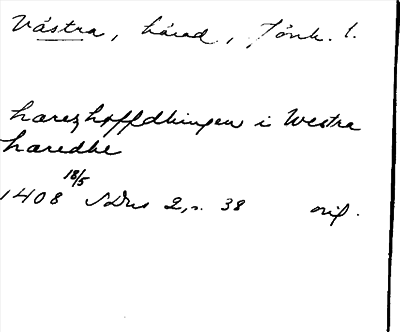 Västra, härad, Jönk. l.
harezhoffdhingen i Westra
haredhe
18/5
1408 SDns 2, s. 38 orig.